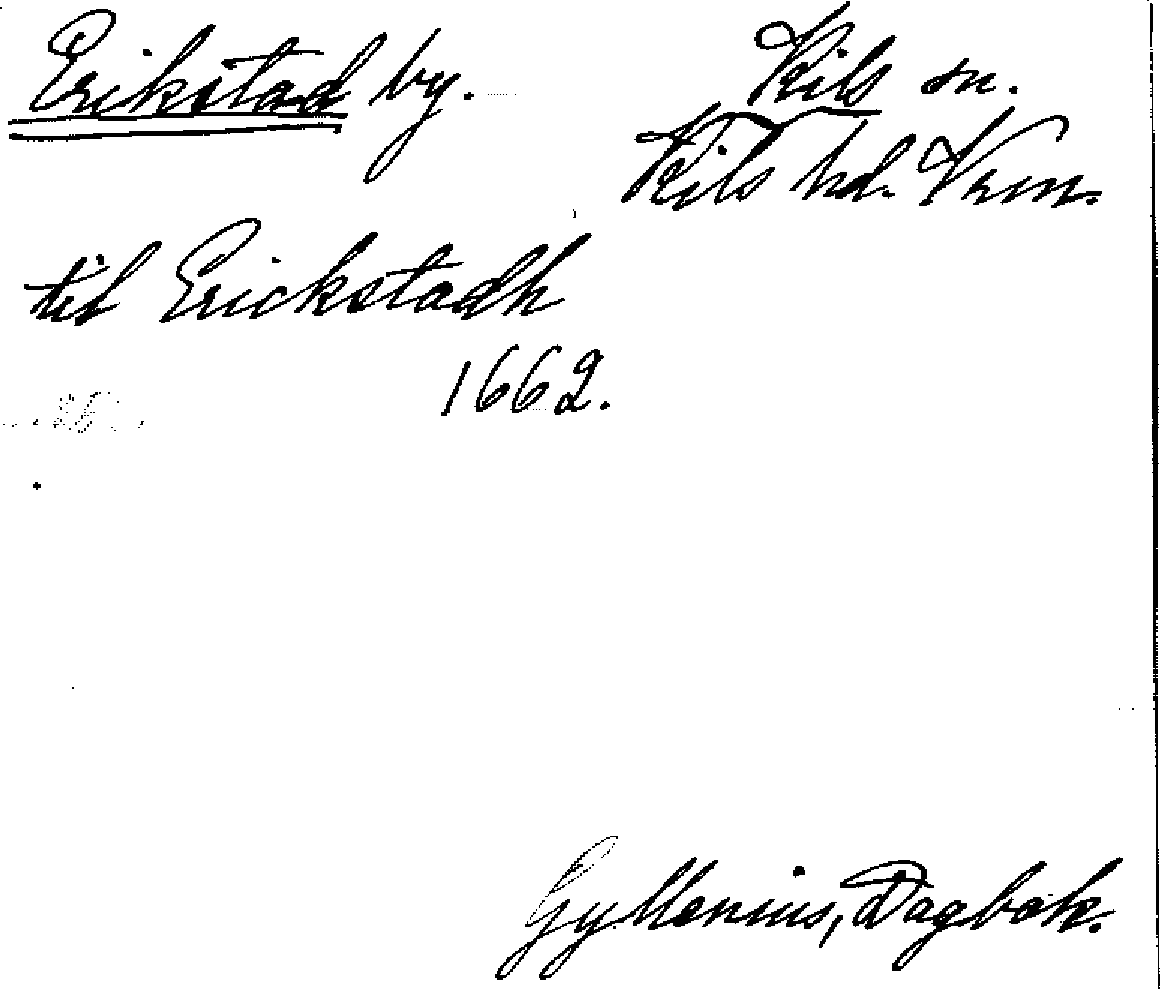 Erikstad by.
Kils sn.
Kils hd. Vrm.
til Erickstadh
1662.
Gyllenius, Dagbok.